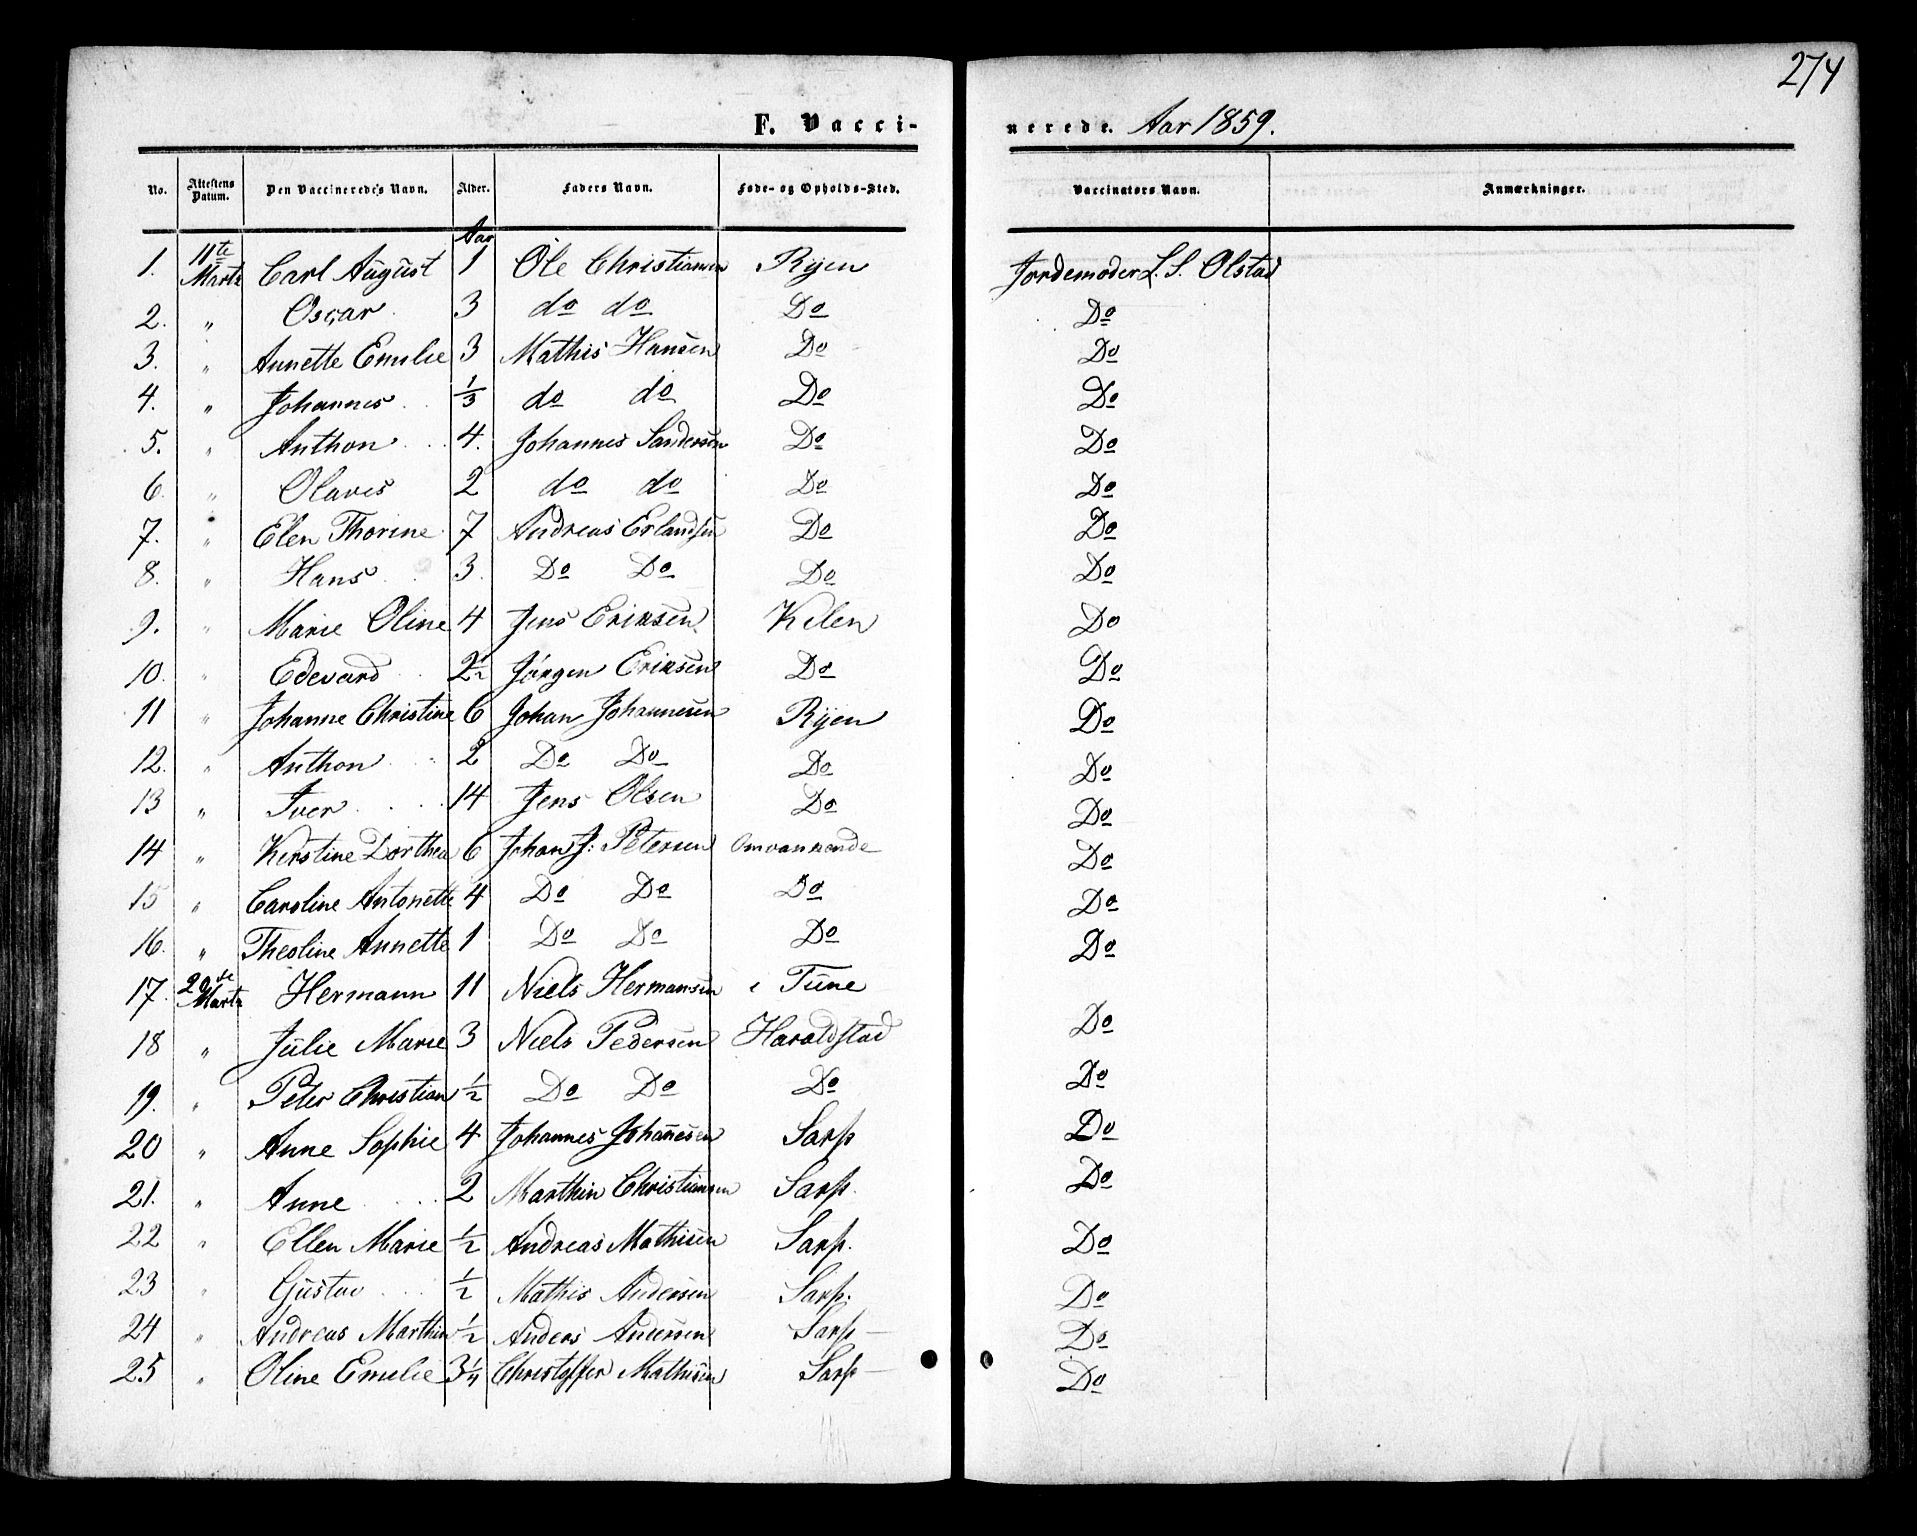 274
F. Vaccinerede. Aar 1859.
No. Attestens Datum. Den Vaccineredes Navn. Alder. Faders Navn. Føde- og Opholds-Sted. Vaccinators Navn. Anmærkninger.
Aar
1. 11te Martz Carl August 1 Ole Christiansen Ryen Jordemoder L. S. Olstad
2. " Oscar 3 do do Do Do
3. " Annette Emilie 3 Mathis Hansen Do Do
4. " Johannes 1/3 do do Do Do
5. " Anthon 4. Johannes Sandersen Do Do
6. " Olaves 2 do do Do Do
7. " Elen Thorine 7 Andreas Erlandsen Do Do
8. " Hans 3. Do Do Do Do
9. " Marie Oline 4 Jens Eriksen Kilen Do
10. " Edevard 2 1/2 Jörgen Eriksen Do Do
11 " Johanne Christine 6 Johan Johannesen Ryen Do
12. " Anthon 2 Do Do Do Do
13 " Iver 14 Jens Olsen Do Do
14 " Kirstine Dorthea 6 Johan J. Petersen Omvankende Do
15 " Caroline Antonette 4 Do Do Do Do
16. " Theoline Annette 1 Do Do Do Do
17. Martz Hermann 11 Niels Hermansen i Tune Do
18 " Julie Marie 3 Niels Pedersen Haraldstad Do
19. " Peter Christian 1/2 Do Do Do Do
20 " Anne Sophie 4 Johannes Johanesen Sarp Do
21. " Anne 2 Marthin Christiansen Sarp. Do
22 " Ellen Marie 1/2 Andreas Mathisen Sarp. Do
23 " Gustav 1/2 Mathis Andersen Sarp. Do
24 " Andreas Marthin 1/2 Anders Andersen Sarp Do
25 " Oline Emilie 3 1/4 Christoffer Mathisen Sarp Do